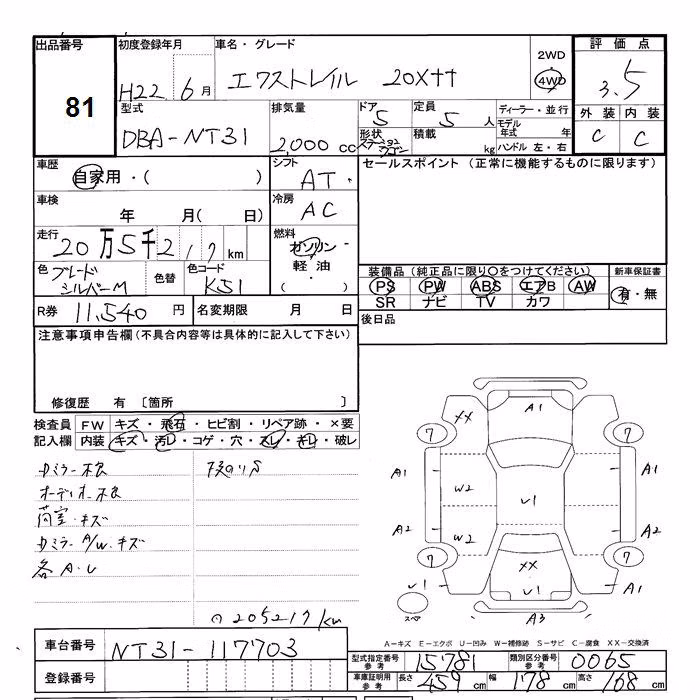 出品番号 初度登録年月 車名・グレード 2WD 評価点
81 H22年6月 エクストレイル 20Xtt 4WD 3.5
型式 排気量 ドア 定員 ディーラー・並行 外装 内装
DBA-NT31 2,000 cc 5 5人 モデル年式 年 C C
形状 ステーションワゴン 積載 kg ハンドル 左・右
車歴 シフト セールスポイント (正常に機能するものに限ります)
自家用・( ) AT
車検 冷房
年 月( 日) AC
走行 燃料
20万5千217km ガソリン・
軽油・
( )
色 色替 色コード 装備品 (純正品に限り○をつけてください) 新車保証書
ブレードシルバーM K51 PS PW ABS エアB AW 有・無
SR ナビ TV カワ
R券 11,540円 名変期限 月 日 後日品
注意事項申告欄 (不具合内容等は具体的に記入して下さい)
修復歴 有 〔箇所 〕
検査員 FW キズ・飛石・ヒビ割・リペア跡・×要
記入欄 内装 キズ・汚レ・コゲ・穴・スレ・キレ・破レ
オーディオ
荷室・キズ
A/W.キズ
各A.U
205217km
A1
XX
7 7
A1 A1
W2
U1
A2 A2
W2
7 7
XX
U1 U1 A1
スペア A3
A-キズ E-エクボ U-凹み W-補修跡 S-サビ C-腐食 XX-交換済
車台番号 NT31-117703
型式指定番号 参考 15781 類別区分番号 参考 0065
登録番号 車庫証明用 参考 長さ 459cm 幅 178cm 高さ 168cm